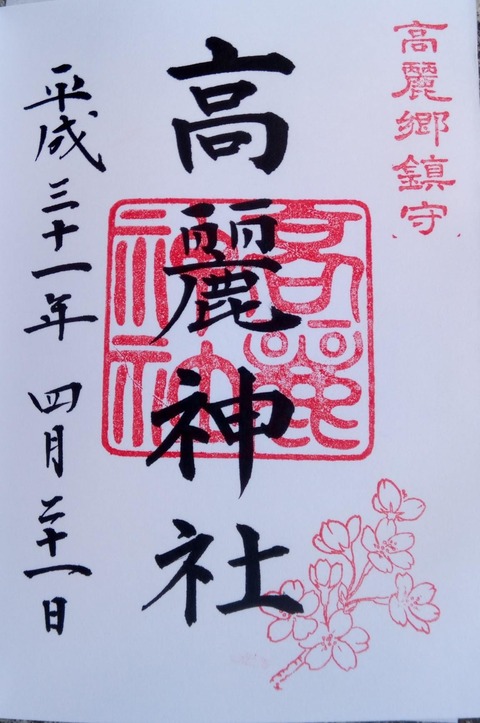 高麗郷鎮守
高麗神社
高麗神社
平成三十一年 四月二十一日